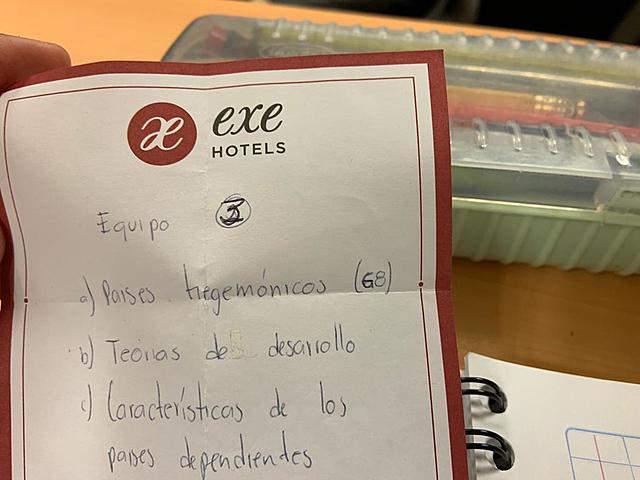 æ exe
HOTELS
Equipo 3
a) Países hegemónicos (G8)
b) Teorías de desarrollo
c) Características de los
países dependientes